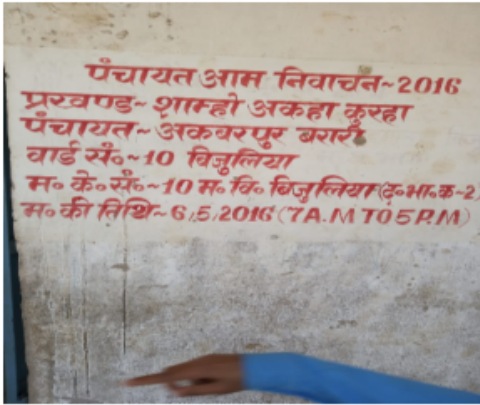 पंचायत आम निवाचन~2016
प्रखण्ड~शाम्हो अकहा कुरहा
पंचायत~अकबरपुर बरारी
वार्ड सं०~10 विजुलिया
म० के० सं०~10 म० वि० विजुलिया (द० भा० क~2)
म० की तिथि~6,5,2016 (7A.M TO 5P.M)